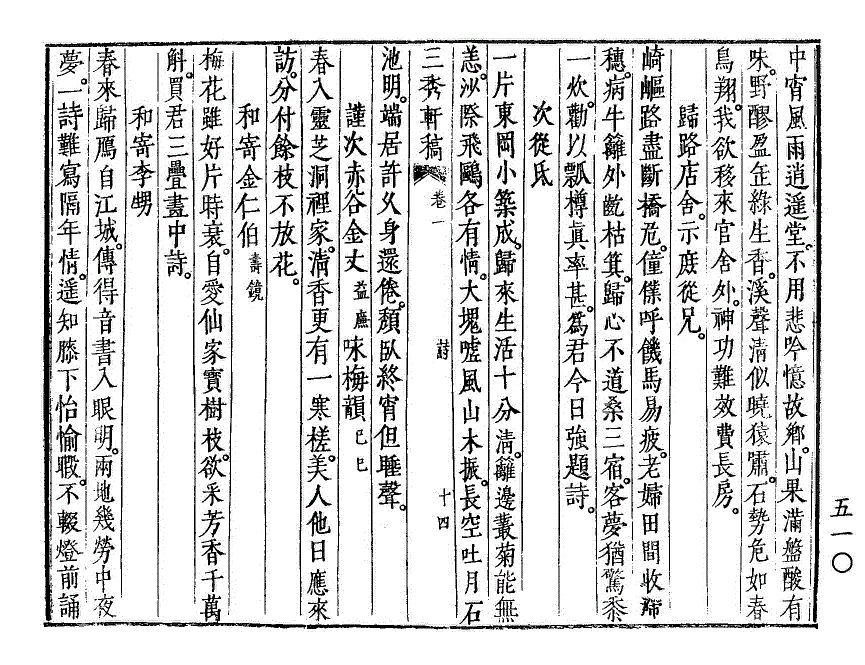 中宵風雨逍遥堂。不用悲吟憶故鄉。山果滿盤酸有
味。野醪盈缶綠生香。溪聲清似曉猿嘯。石勢危如春
鳥翔。我欲移來官舍外。神功難效費長房。
歸路店舍。示庶從兄。
崎嶇路盡斷橋危。僮僕呼饑馬易疲。老婦田間收滯
穗。病牛籬外齕枯萁。歸心不道桑三宿。客夢猶驚黍
一炊。勸以瓢樽眞率甚。爲君今日強題詩。
次從氏
一片東岡小築成。歸來生活十分清。籬邊叢菊能無
恙。沙際飛鷗各有情。大塊噓風山木振。長空吐月石
三秀軒稿 卷一 詩 十四
池明。端居許久身還倦。頹臥終宵但睡聲。
謹次赤谷金丈益廉咏梅韻己巳
春入靈芝洞裡家。淸香更有一寒槎。美人他日應來
訪。分付餘枝不放花。
和寄金仁伯壽鏡
梅花雖好片時衰。自愛仙家寶樹枝。欲釆芳香千萬
斛。買君三疊畵中詩。
和寄李甥
春來歸鴈自江城。傳得音書入眼明。兩地幾勞中夜
夢。一詩難寫隔年情。遥知膝下怡愉暇。不輟燈前誦
五一〇